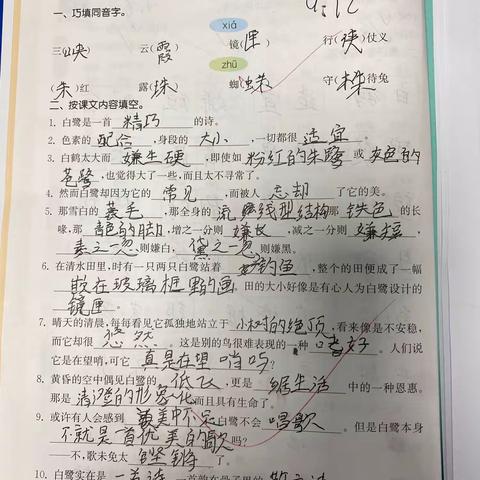 9.12
一、巧填同音字。
xiá
三(峡) 云(霞) 镜(匣) 行(侠)仗义
zhū
(朱)红 露(珠) 蜘(蛛) 守(株)待兔
二、按课文内容填空。
1. 白鹭是一首 精巧 的诗。
2. 色素的 配合 ,身段的 大小 ,一切都很 适宜 。
3. 白鹤太大而 嫌生硬 ,即使如 粉红的朱鹭 或 灰色的
苍鹭 ,也觉得大了一些,而且太不寻常了。
4. 然而白鹭却因为它的 常见 ,而被人 忘却 了它的美。
5. 那雪白的 蓑毛 ,那全身的 流线型结构 那 铁色 的长
喙,那 青色的脚 ,增之一分则 嫌长 ,减之一分则 嫌短 ,
素之一忽 则嫌白, 黛之一忽 则嫌黑。
6. 在清水田里,时有一只两只白鹭站着 钓鱼 ,整个的田便成了一幅
嵌在玻璃框里的画 田的大小好像是有心人为白鹭设计的
镜匣 。
7. 晴天的清晨,每每看见它孤独地站立于 小树的绝顶 ,看来像是不安稳,
而它却很 悠然 。这是别的鸟很难表现的一种 嗜好 。人们说
它是在望哨,可它 真是在望 哨吗?
8. 黄昏的空中偶见白鹭的 低飞 ,更是 生活 中的一种恩惠。
那是 清澄的形象化 而且具有生命了。
9. 或许有人会感到 美中不足 白鹭不会 唱歌 。但是白鹭本身
不就是 首优美的歌 吗?
——不,歌未免太 铿锵 了。
10. 白鹭实在是 一首诗